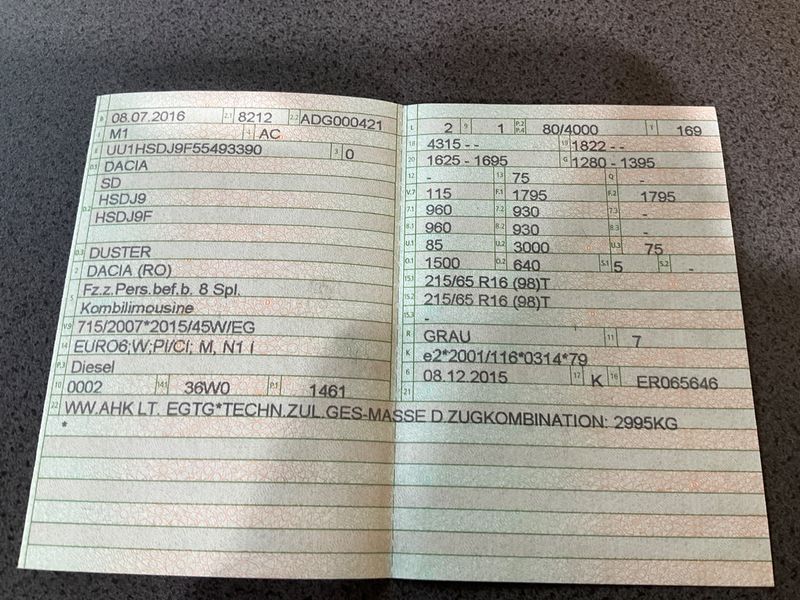 B 08.07.2016 2.1 8212 2.2 ADG000421
J M1 4 AC
E UU1HSDJ9F55493390 3 0
D.1 DACIA
SD
D.2 HSDJ9
HSDJ9F
D.3 DUSTER
2 DACIA (RO)
5 Fz.z.Pers.bef.b. 8 Spl.
Kombilimousine
V.9 715/2007*2015/45W/EG
14 EURO6;W;PI/CI; M, N1 I
P.3 Diesel
10 0002 14.1 36W0 P.1 1461
L 2 9 1 P.2 P.4 80/4000 T 169
18 4315 - - 19 1822 - -
20 1625 - 1695 G 1280 - 1395
12 - 13 75 Q -
V.7 115 F.1 1795 F.2 1795
7.1 960 7.2 930 7.3 -
8.1 960 8.2 930 8.3 -
U.1 85 U.2 3000 U.3 75
O.1 1500 O.2 640 S.1 5 S.2 -
15.1 215/65 R16 (98)T
15.2 215/65 R16 (98)T
15.3 -
R GRAU 11 7
K e2*2001/116*0314*79
6 08.12.2015 17 K 16 ER065646
21
22 WW.AHK LT. EGTG*TECHN.ZUL.GES-MASSE D.ZUGKOMBINATION: 2995KG
*